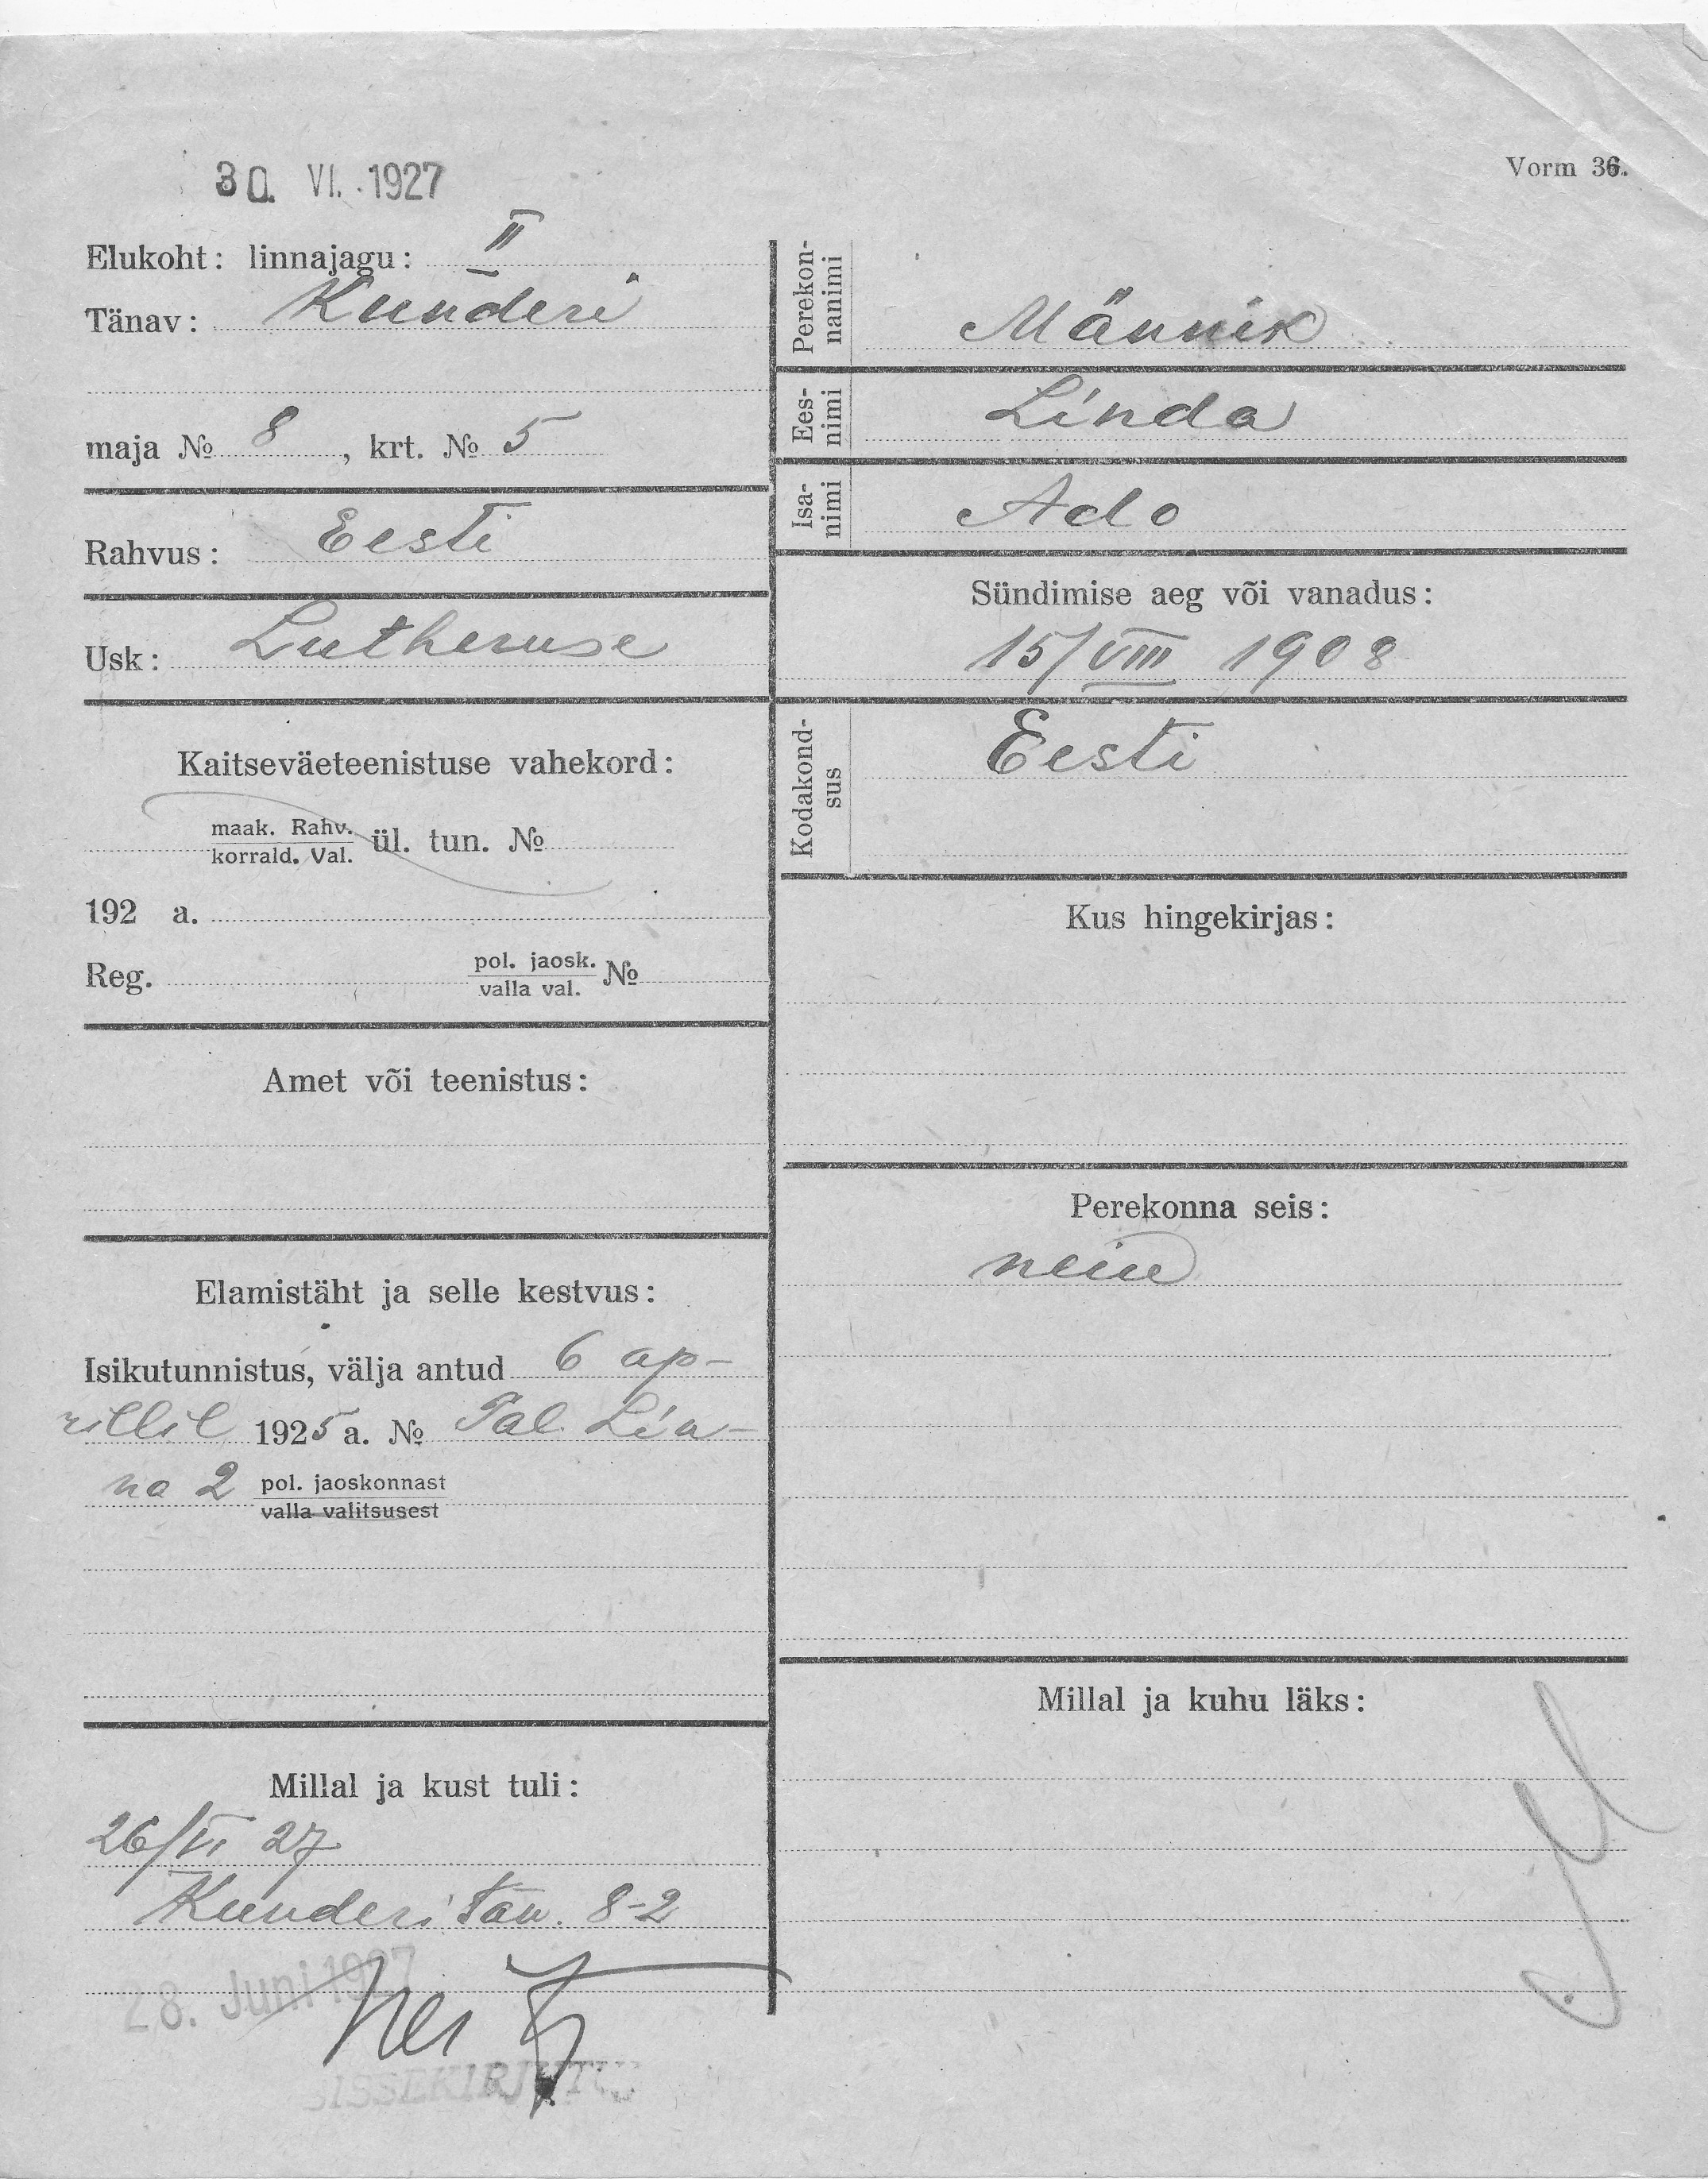 30. VI. 1927
Vorm 36.
Elukoht: linnajagu: II
Tänav: Kunderi
maja № 8, krt. № 5
Rahvus: Eesti
Usk: Lutheruse
Kaitseväeteenistuse vahekord:
maak. Rahv.
korrald. Val. ül. tun. №
192 a.
Reg. pol. jaosk. №
valla val.
Amet või teenistus:
Elamistäht ja selle kestvus:
Isikutunnistus, välja antud 6 ap-
rillil 1925 a. № Tal. Lin-
na 2 pol. jaoskonnast
valla valitsusest
Millal ja kust tuli:
26/VI 27
Kunderi tän. 8-2
28. Juni 1927
SISSEKIRJUTU
Perekon-
nanimi
Männik
Ees-
nimi
Linda
Isa-
nimi
Ado
Sündimise aeg või vanadus:
15/VIII 1908
Kodakond-
sus
Eesti
Kus hingekirjas:
Perekonna seis:
neiu
Millal ja kuhu läks: